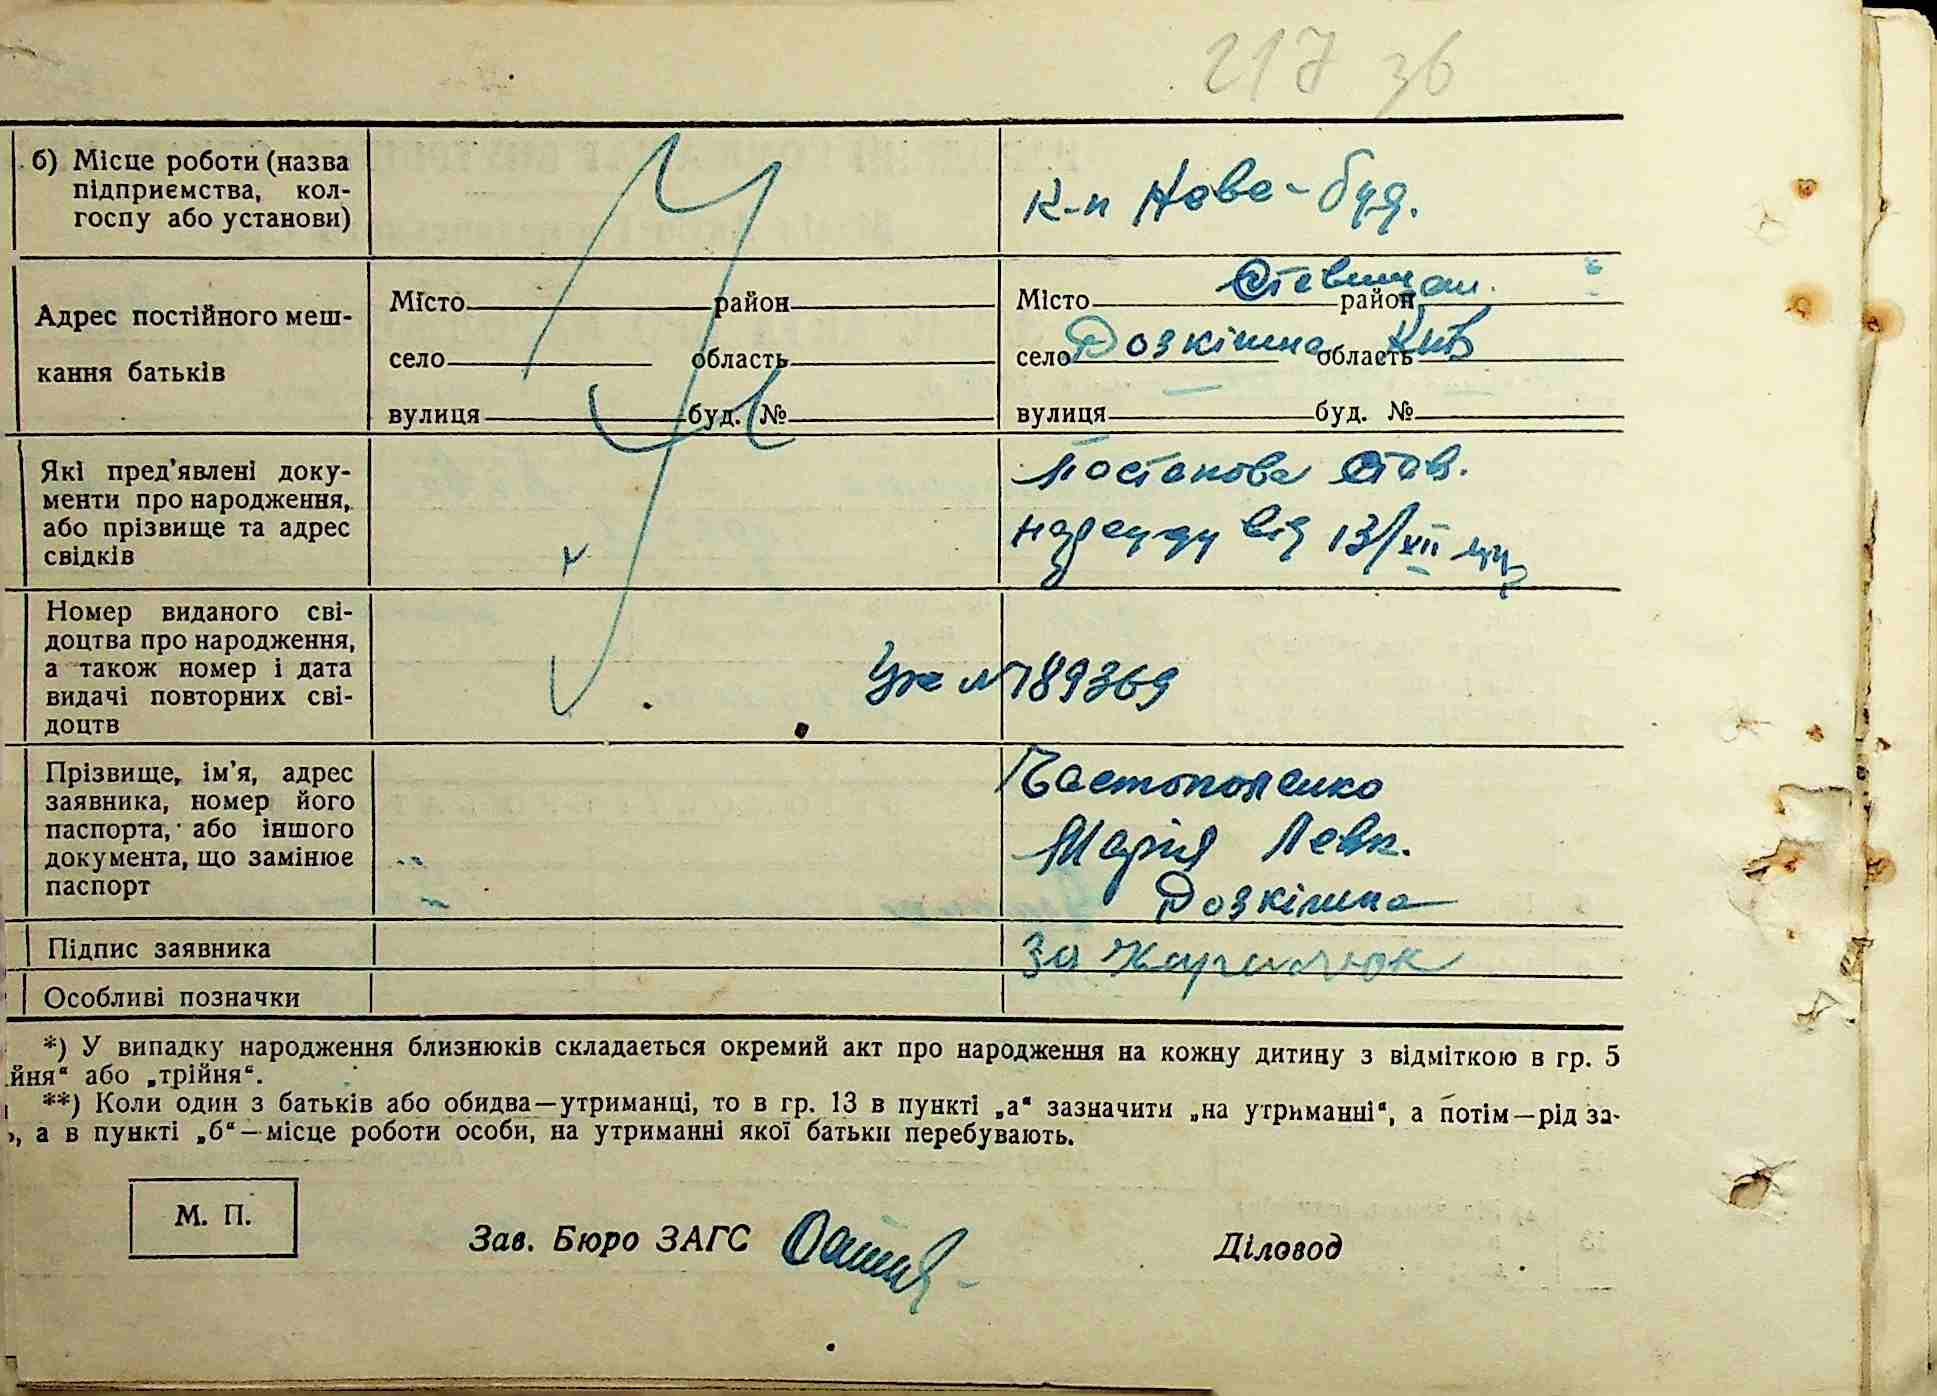 217 зв
б) Місце роботи (назва
підприємства, кол-
госпу або установи)
к-п Ново-буд.
Адрес постійного меш-
кання батьків
Місто район
село область
вулиця буд. №
Місто Ставищан. район
село Розкішна область Київ
вулиця буд. №
Які пред'явлені доку-
менти про народження,
або прізвище та адрес
свідків
Постанова Став.
нарсуду від 13/XII
Номер виданого сві-
доцтва про народження,
а також номер і дата
видачі повторних сві-
доцтв
№ 189369
Прізвище, ім'я, адрес
заявника, номер його
паспорта, або іншого
документа, що замінює
паспорт
Частоколенко
Марія Левк.
Розкішна
Підпис заявника
За
Особливі позначки
*) У випадку народження близнюків складається окремий акт про народження на кожну дитину з відміткою в гр. 5
йня“ або „трійня“.
**) Коли один з батьків або обидва—утриманці, то в гр. 13 в пункті „а“ зазначити „на утриманні“, а потім—рід за-
, а в пункті „б“—місце роботи особи, на утриманні якої батьки перебувають.
М. П.
Зав. Бюро ЗАГС
Діловод